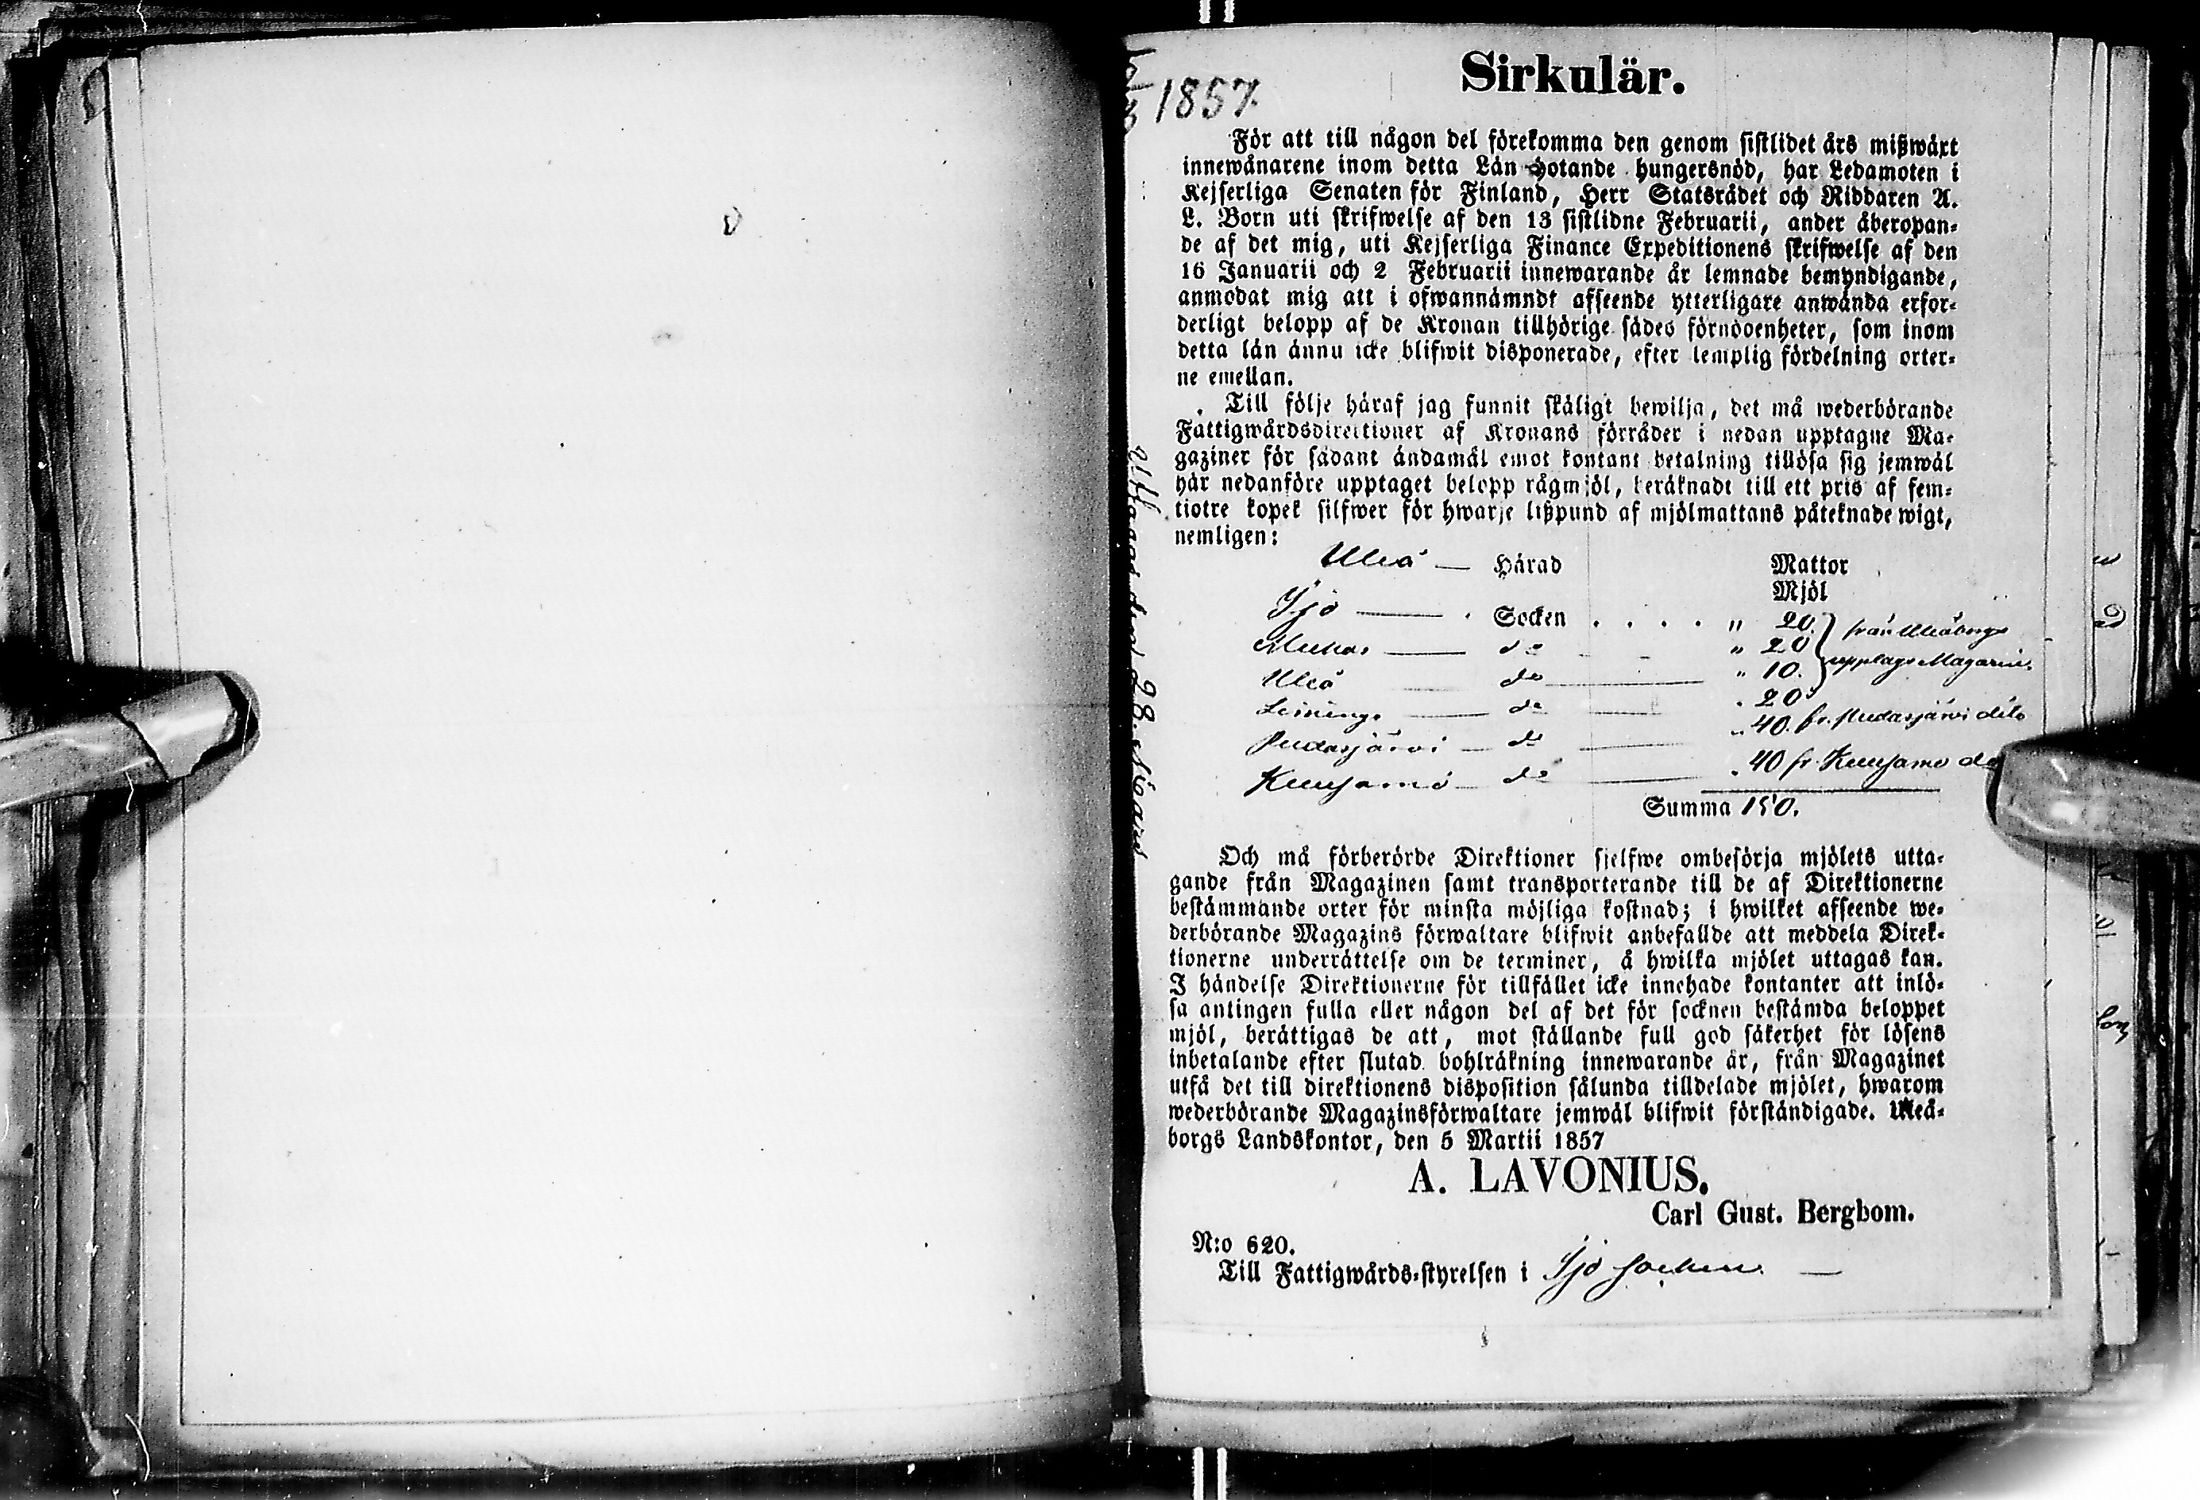 Sirkulär.
1857.
För att till någon del förekomma den genom sistlidet års mißwäxt
innewånarene inom detta Län hotande hungersnöd, har Ledamoten i
Kejserliga Senaten för Finland, Herr Statsrådet och Riddaren A.
L. Born uti skrifwelse af den 13 sistlidne Februarii, ander åberopan-
de af det mig, uti Kejserliga Finance Expeditionens skrifwelse af den
16 Januarii och 2 Februarii innewarande år lemnade bemyndigande,
anmodat mig att i ofwannämndt afseende ytterligare använda erfor-
derligt belopp af de Kronan tillhörige sädes förnödenheter, som inom
detta län ännu icke blifwit disponerade, efter lemplig fördelning orter-
ne emellan.
Till följe häraf jag funnit skäligt bewilja, det må wederbörande
Fattigwårdsdirektioner af Kronans förråder i nedan upptagne Ma-
gaziner för sådant ändamål emot kontant betalning tillösa sig jemwäl
här nedanföre upptaget belopp rågmjöl, beräknadt till ett pris af fem-
tiotre kopek silfwer för hwarje lißpund af mjölmattans påteknade wigt,
nemligen:
Uleå — Härad Mattor
Mjöl
Ijo — Socken . . . . " 20. } från Uleåborgs
Muhos — do " 20 upplags Magazin
Uleå — do " 10.
do " 20
Pudasjärvi — do " 40. fr. Pudasjärvi dito
Kuusamo — do " 40 fr. Kuusamo do
Summa 150.
Och må förberörde Direktioner sjelfwe ombesörja mjölets utta-
gande från Magazinen samt transporterande till de af Direktionerne
bestämmande orter för minsta möjliga kostnad; i hwilket afseende we-
derbörande Magazins förwaltare blifwit anbefallde att meddela Direk-
tionerne underrättelse om de terminer, å hwilka mjölet uttagas kan.
I händelse Direktionerne för tillfället icke innehade kontanter att inlö-
sa antingen fulla eller någon del af det för socknen bestämda beloppet
mjöl, berättigas de att, mot ställande full god säkerhet för lösens
inbetalande efter slutad bohlräkning innewarande år, från Magazinet
utfå det till direktionens disposition sålunda tilldelade mjölet, hwarom
wederbörande Magazinsförwaltare jemwäl blifwit förständigade. Uleå-
borgs Landskontor, den 5 Martii 1857
A. LAVONIUS.
Carl Gust. Bergbom.
N:o 620.
Till Fattigwårds-styrelsen i Ijo socken. —